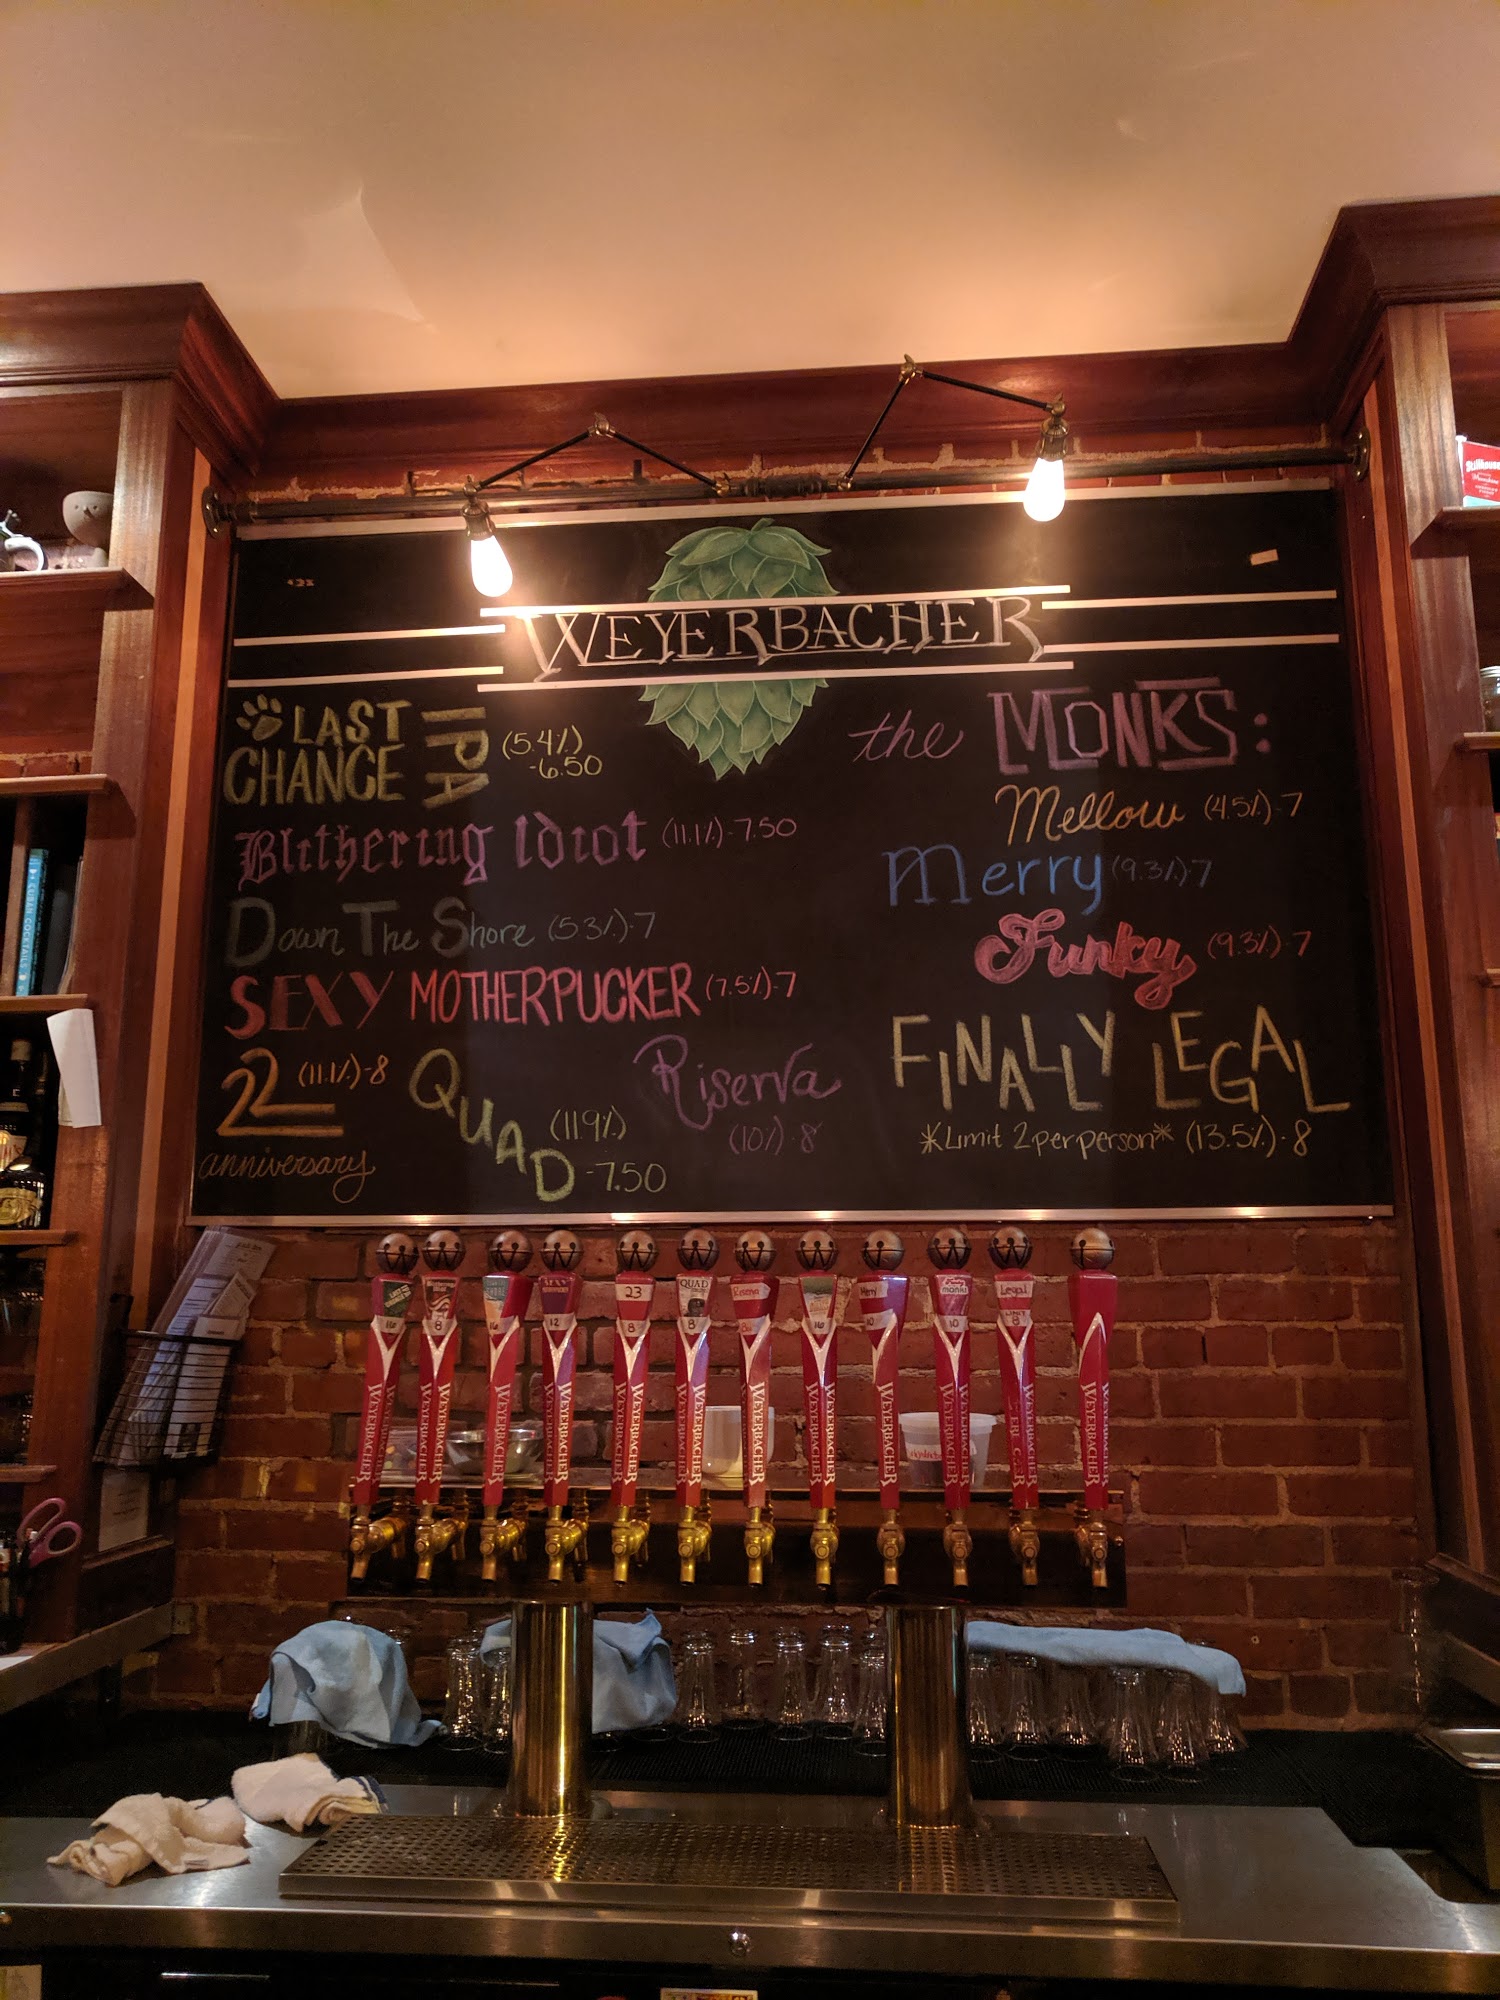 WEYERBACHER
LAST
CHANCE
IPA
(5.4%)
-6.50
Blithering Idiot (11.1%)-7.50
Down The Shore (5.3%)-7
SEXY MOTHERPUCKER (7.5%)-7
22 (11.1%)-8
anniversary
QUAD (11.9%)
-7.50
Riserva
(10%)-8
the MONKS:
Mellow (4.5%)-7
Merry (9.3%)-7
Funky (9.3%)-7
FINALLY LEGAL
*Limit 2 per person* (13.5%)-8
Stillhouse
CUBAN COCKTAILS
SEXY
12
23
8
QUAD
8
Riserva
8
16
Merry
10
monks
10
Legal
8
WEYERBACHER
WEYERBACHER
WEYERBACHER
WEYERBACHER
WEYERBACHER
WEYERBACHER
WEYERBACHER
WEYERBACHER
WEYERBACHER
WEYERBACHER
WEYERBACHER
WEYERBACHER